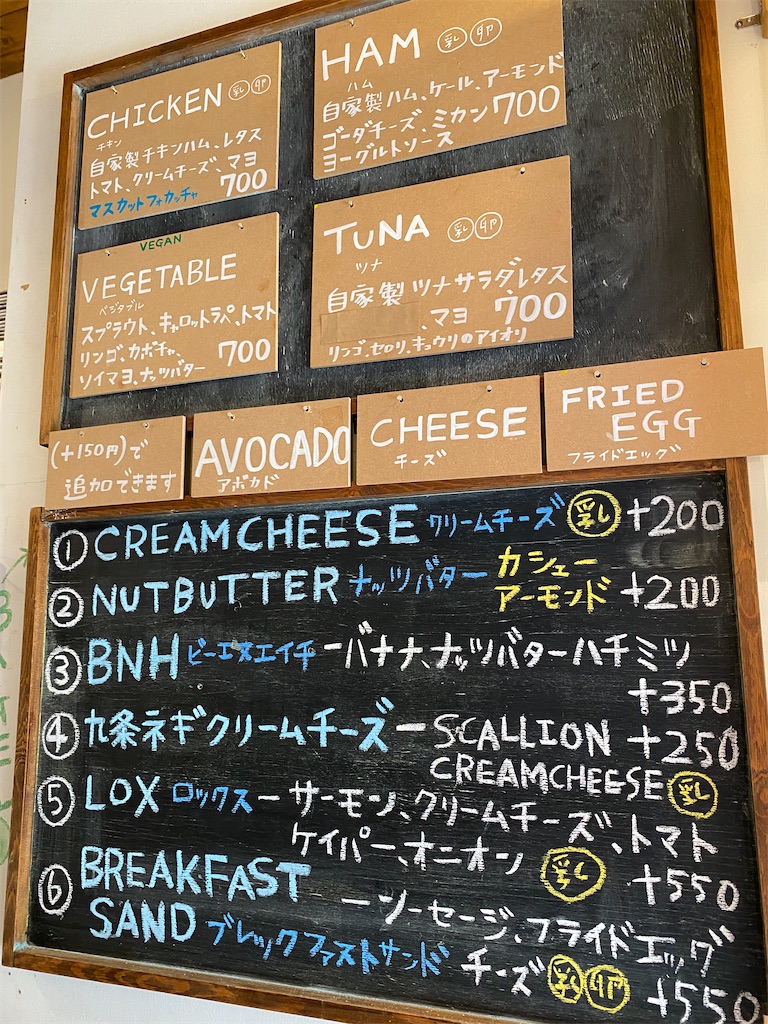 CHICKEN 乳 卵
チキン
自家製チキンハム、レタス
トマト、クリームチーズ、マヨ
マスカットフォカッチャ 700
HAM 乳 卵
ハム
自家製ハム、ケール、アーモンド
ゴーダチーズ、ミカン 700
ヨーグルトソース
VEGAN
VEGETABLE
ベジタブル
スプラウト、キャロットラペ、トマト
リンゴ、カボチャ、
ソイマヨ、ナッツバター 700
TUNA 乳 卵
ツナ
自家製ツナサラダ、レタス
、マヨ 700
リンゴ、セロリ、キュウリのアイオリ
(+150円)で
追加できます
AVOCADO
アボカド
CHEESE
チーズ
FRIED
EGG
フライドエッグ
① CREAMCHEESE クリームチーズ 乳 +200
② NUTBUTTER ナッツバター カシュー
アーモンド +200
③ BNH ビーエヌエイチ ーバナナ、ナッツバターハチミツ
+350
④ 九条ネギクリームチーズー SCALLION +250
CREAMCHEESE 乳
⑤ LOX ロックスーサーモン、クリームチーズ、トマト
ケイパー、オニオン 乳 +550
⑥ BREAKFAST
SAND ブレックファストサンド ーソーセージ、フライドエッグ
チーズ 乳 卵 +550